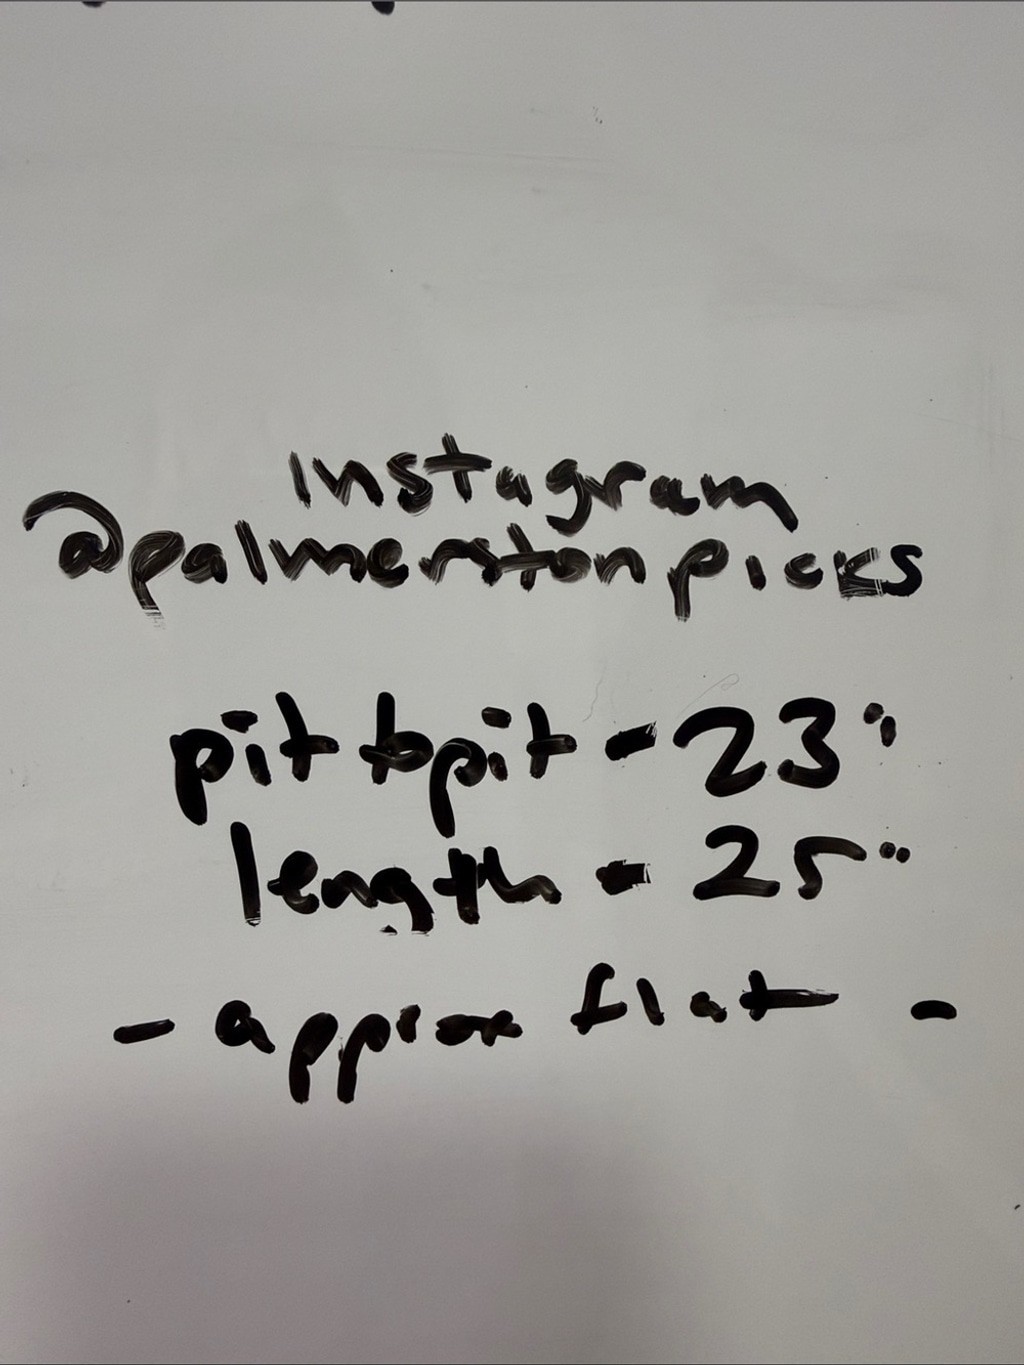 Instagram
@palmerstonpicks
pit to pit - 23"
length - 25"
- approx flat -